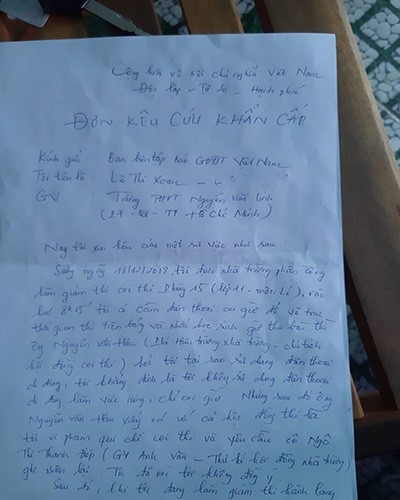 Cộng hòa xã hội chủ nghĩa Việt Nam
Độc lập - Tự do - Hạnh phúc
ĐƠN KÊU CỨU KHẨN CẤP
Kính gửi Ban biên tập báo GDĐT Việt Nam
Tôi tên là : Lê Thị Xoan
GV Trường THPT Nguyễn Văn Linh
Hồ Chí Minh)
Nay tôi xin kêu cứu một sự việc như sau
Sáng ngày 18/12/2018 tôi được nhà trường phân công
làm giám thị coi thi Phòng 15 (lớp 11 - môn Lí), vào
lúc 8h15' tôi có cầm điện thoại coi giờ để và trừ
thời gian thi trên bảng và nhắc học sinh giờ thu bài thì
ông Nguyễn Văn Hậu (Phó Hiệu trưởng nhà trường - chủ tịch
hội đồng coi thi) hỏi tôi tại sao sử dụng điện thoại
di động, tôi khẳng định là tôi không sử dụng điện thoại
di động làm việc riêng, chỉ coi giờ. Nhưng sau đó ông
Nguyễn Văn Hậu nói với cả hội đồng thi là
tôi vi phạm qui chế coi thi và yêu cầu cô Ngô
Thị Thanh Điệp (GV Anh Văn - Thư kí hội đồng nhà trường)
ghi biên bản. Tôi đã nói tôi không đồng ý
Sau đó, khi tôi đang làm giám thị hành lang